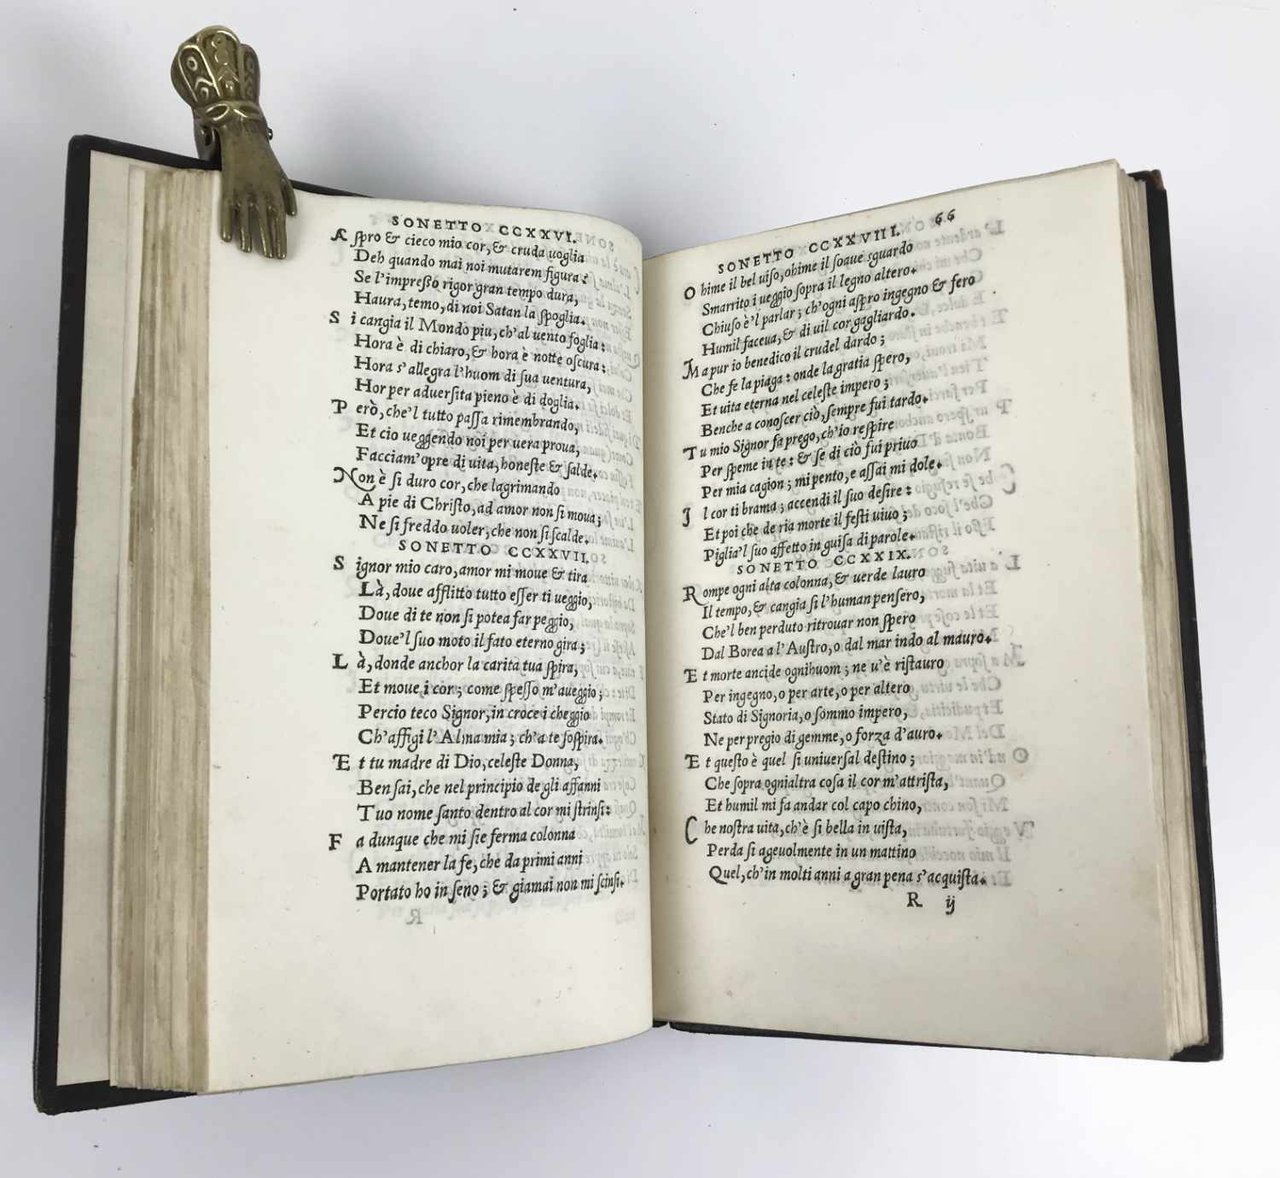 SONETTO CCXXVI.
Aspro & cieco mio cor, & cruda uoglia
Deh quando mai noi mutarem figura?
Se l'impresso rigor gran tempo dura,
Haura, temo, di noi Satan la spoglia.
Si cangia il Mondo piu, ch'al uento foglia:
Hora è di chiaro, & hora è notte oscura:
Hora s'allegra l'huom di sua uentura,
Hor per aduersita pieno è di doglia.
Però, che'l tutto passa rimembrando,
Et cio ueggendo noi per uera proua,
Facciam'opre di uita, honeste & salde.
Non è si duro cor, che lagrimando
A pie di Christo, ad amor non si moua;
Ne si freddo uoler, che non si scalde.
SONETTO CCXXVII.
Signor mio caro, amor mi moue & tira
Là, doue afflitto tutto esser ti ueggio,
Doue di te non si potea far peggio,
Doue'l suo moto il fato eterno gira;
Là, donde anchor la carita tua spira,
Et moue i cor; come spesso m'aueggio;
Percio teco Signor, in croce i cheggio
Ch'affigi l'Alma mia; ch'a te sospira.
Et tu madre di Dio, celeste Donna,
Ben sai, che nel principio de gli affanni
Tuo nome santo dentro al cor mi strinsi:
Fa dunque che mi sie ferma colonna
A mantener la fe, che da primi anni
Portato ho in seno; & giamai non mi scinsi.
66
SONETTO CCXXVIII.
Ohime il bel uiso, ohime il soaue sguardo
Smarrito i ueggio sopra il legno altero.
Chiuso è'l parlar; ch'ogni aspro ingegno & fero
Humil faceua, & di uil cor gagliardo.
Ma pur io benedico il crudel dardo;
Che fe la piaga: onde la gratia spero,
Et uita eterna nel celeste impero;
Benche a conoscer ciò, sempre fui tardo.
Tu mio Signor fa prego, ch'io respire
Per speme in te: & se di ciò fui priuo
Per mia cagion; mi pento, e assai mi dole.
Il cor ti brama; accendi il suo desire:
Et poi che de ria morte il festi uiuo;
Piglia'l suo affetto in guisa di parole.
SONETTO CCXXIX.
Rompe ogni alta colonna, & uerde lauro
Il tempo, & cangia si l'human pensero,
Che'l ben perduto ritrouar non spero
Dal Borea a l'Austro, o dal mar indo al mauro.
Et morte ancide ognihuom; ne u'è ristauro
Per ingegno, o per arte, o per altero
Stato di Signoria, o sommo impero,
Ne per pregio di gemme, o forza d'auro.
Et questo è quel si uniuersal destino;
Che sopra ognialtra cosa il cor m'attrista,
Et humil mi fa andar col capo chino,
Che nostra uita, ch'è si bella in uista,
Perda si ageuolmente in un mattino
Quel, ch'in molti anni a gran pena s'acquista.
R ij